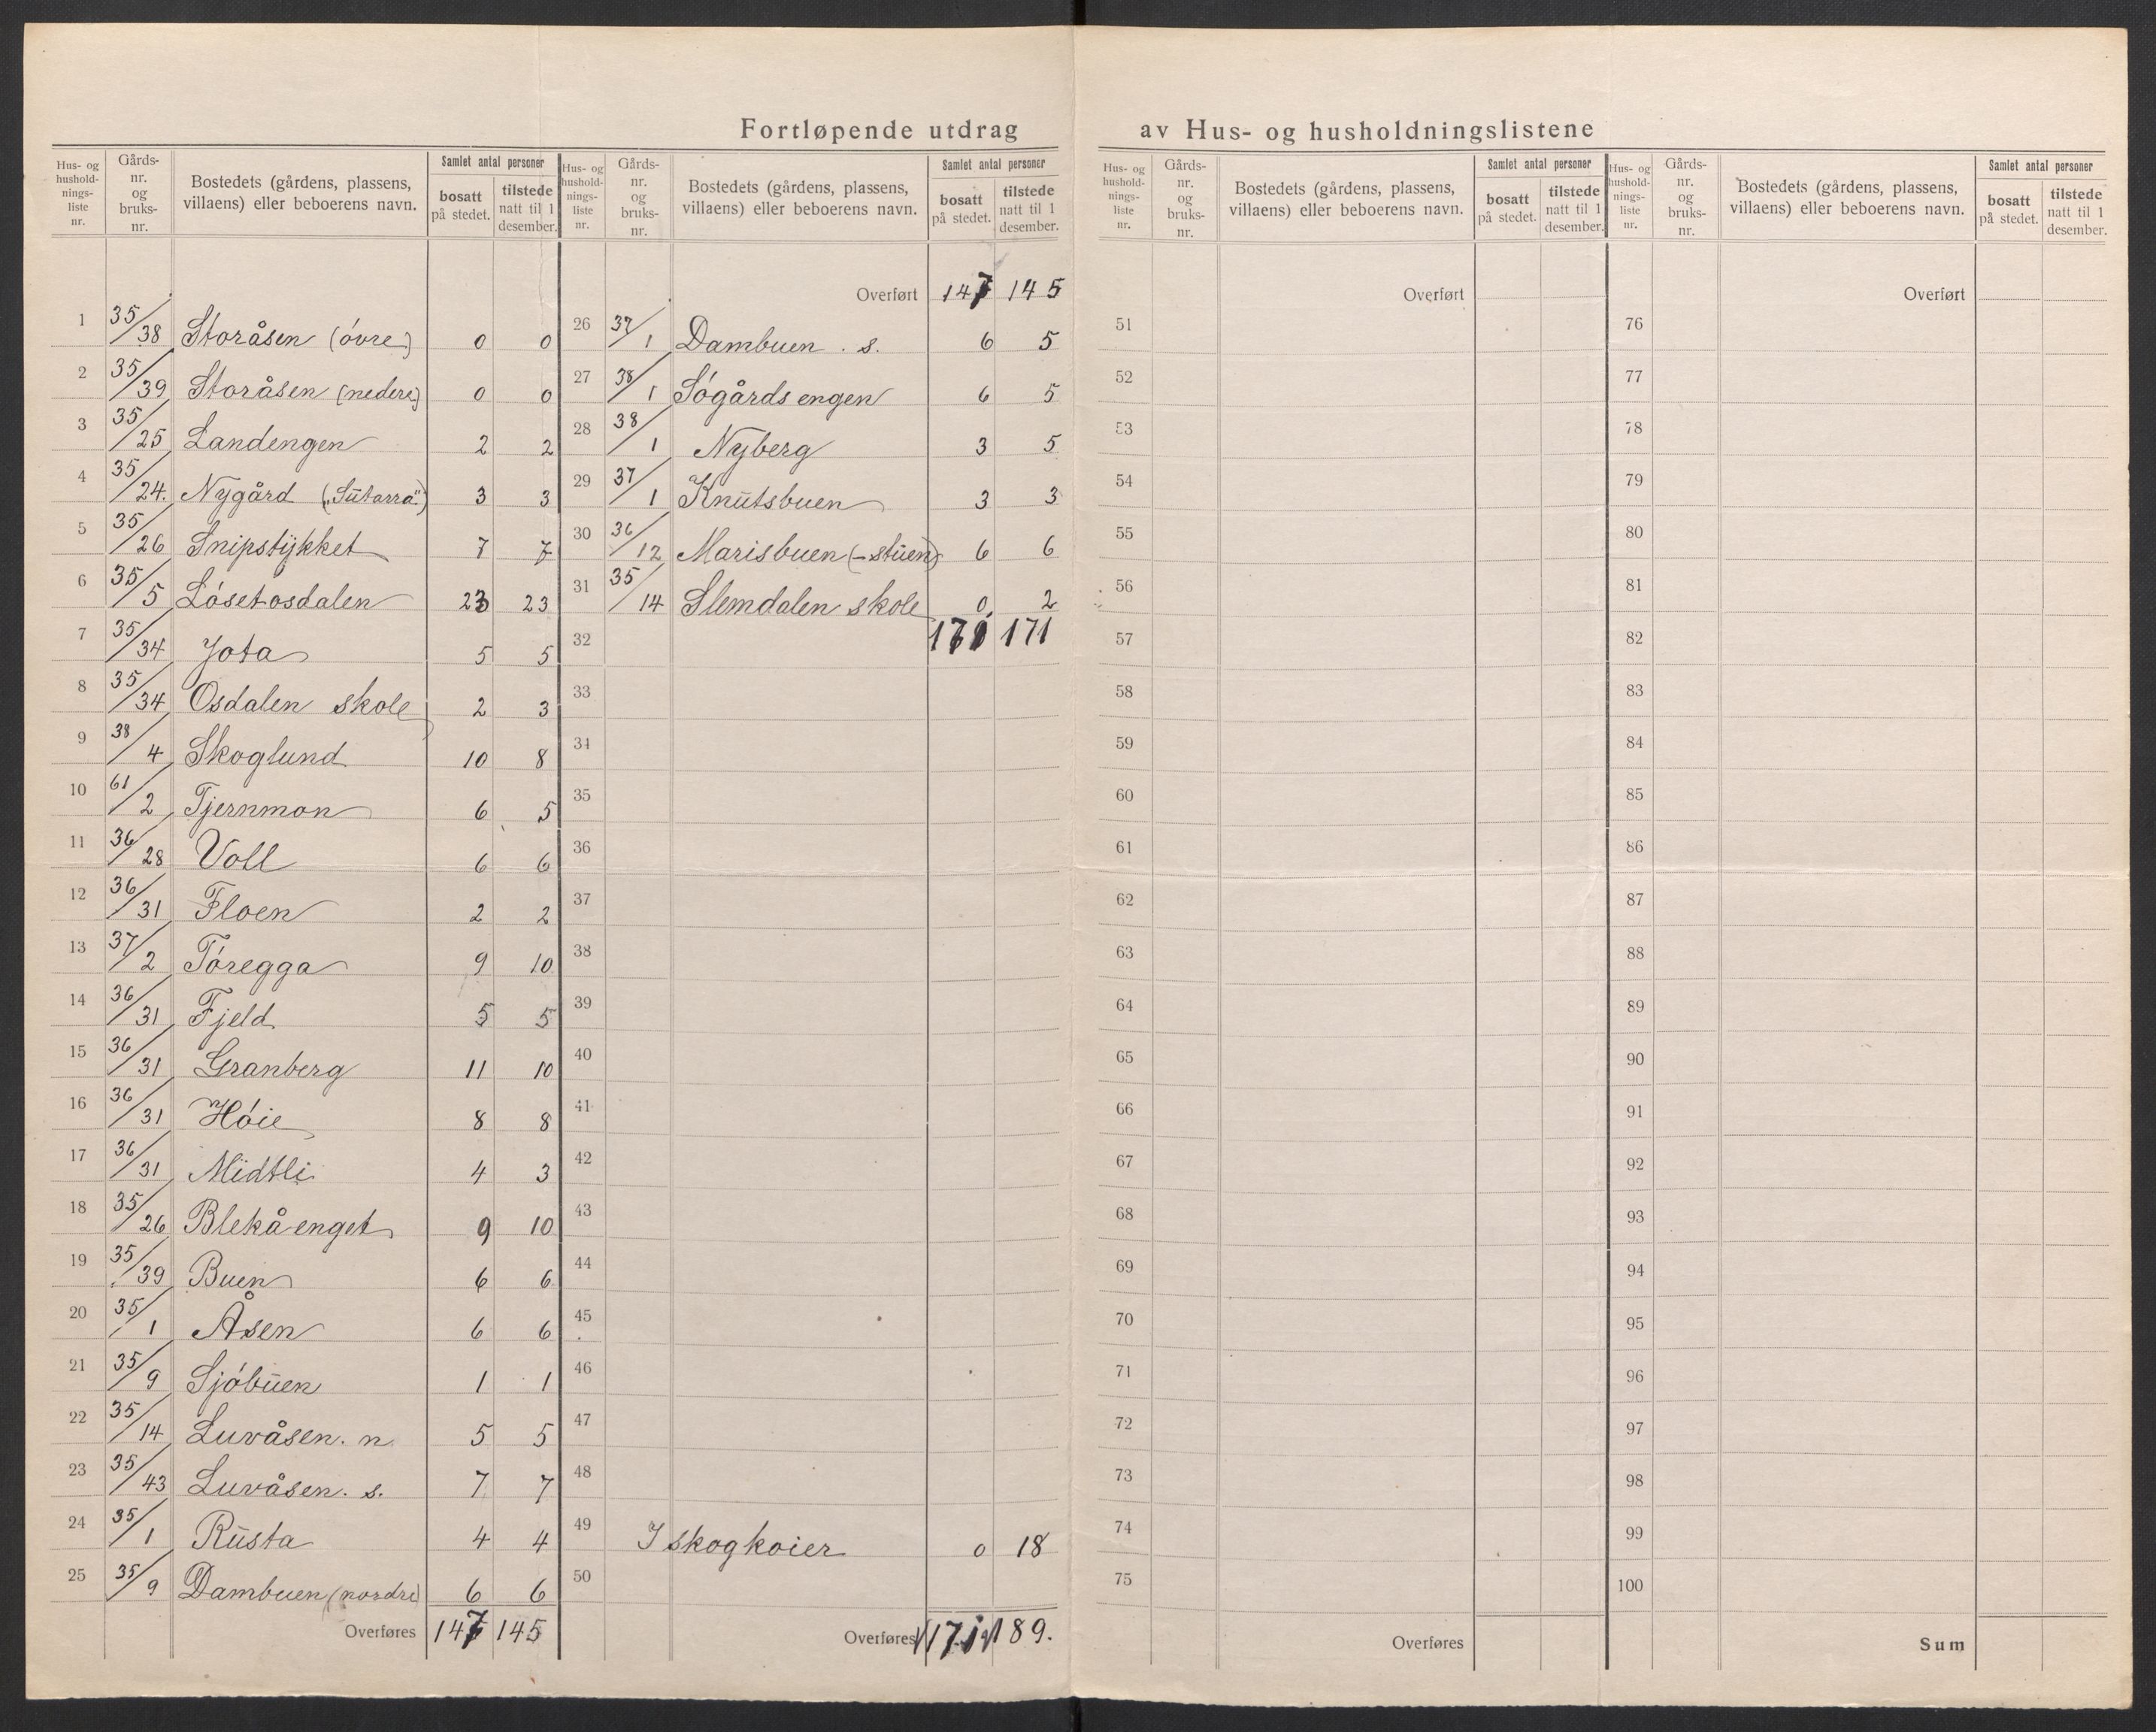 Fortløpende utdrag av Hus- og husholdningslistene
Hus- og husholdningsliste nr. | Gårds-nr. og bruks-nr. | Bostedets (gårdens, plassens, villaens) eller beboerens navn. | Samlet antal personer | bosatt på stedet. | tilstede natt til 1 desember.
1 35/38 Storåsen (óvre) 0 0
2 35/39 Storåsen (nedere) 0 0
3 35/25 Landengen 2 2
4 35/24. Nygård („Sūtarra") 3 3
5 35/26 Snipstykket 7 7
6 35/5 Lósetosdalen 23 23
7 35/34 Jota 5 5
8 35/34 Osdalen skole 2 3
9 38/4 Skoglund 10 8
10 61/2 Tjernmon 6 5
11 36/28 Voll 6 6
12 36/31 Floen 2 2
13 37/2 Tóregga 9 10
14 36/31 Fjeld 5 5
15 36/31 Granberg 11 10
16 36/31 Hóie 8 8
17 36/31 Midtli 4 3
18 35/26 Blekåenget 9 10
19 35/39 Buen 6 6
20 35/1 Åsen 6 6
21 35/9 Sjóbūen 1 1
22 35/14 Luvåsen. n. 5 5
23 35/43 Luvåsen. s. 7 7
24 35/1 Rūsta 4 4
25 35/9 Dambuen (nordre) 6 6
Overføres 147 145
Hus- og husholdningsliste nr. | Gårds-nr. og bruks-nr. | Bostedets (gårdens, plassens, villaens) eller beboerens navn. | Samlet antal personer | bosatt på stedet. | tilstede natt til 1 desember.
Overført 147 145
26 37/1 Dambuen. s. 6 5
27 38/1 Sógårdsengen 6 5
28 38/1 Nyberg 3 5
29 37/1 Knūtsbuen 3 3
30 36/12 Marisbuen (-stūen) 6 6
31 35/14 Slemdalen skole 0 2
32 171 171
33
34
35
36
37
38
39
40
41
42
43
44
45
46
47
48
49 I skogkoier 0 18
50
Overføres 171 189.
Hus- og husholdningsliste nr. | Gårds-nr. og bruks-nr. | Bostedets (gårdens, plassens, villaens) eller beboerens navn. | Samlet antal personer | bosatt på stedet. | tilstede natt til 1 desember.
Overført
51
52
53
54
55
56
57
58
59
60
61
62
63
64
65
66
67
68
69
70
71
72
73
74
75
Overføres
Hus- og husholdningsliste nr. | Gårds-nr. og bruks-nr. | Bostedets (gårdens, plassens, villaens) eller beboerens navn. | Samlet antal personer | bosatt på stedet. | tilstede natt til 1 desember.
Overført
76
77
78
79
80
81
82
83
84
85
86
87
88
89
90
91
92
93
94
95
96
97
98
99
100
Sum